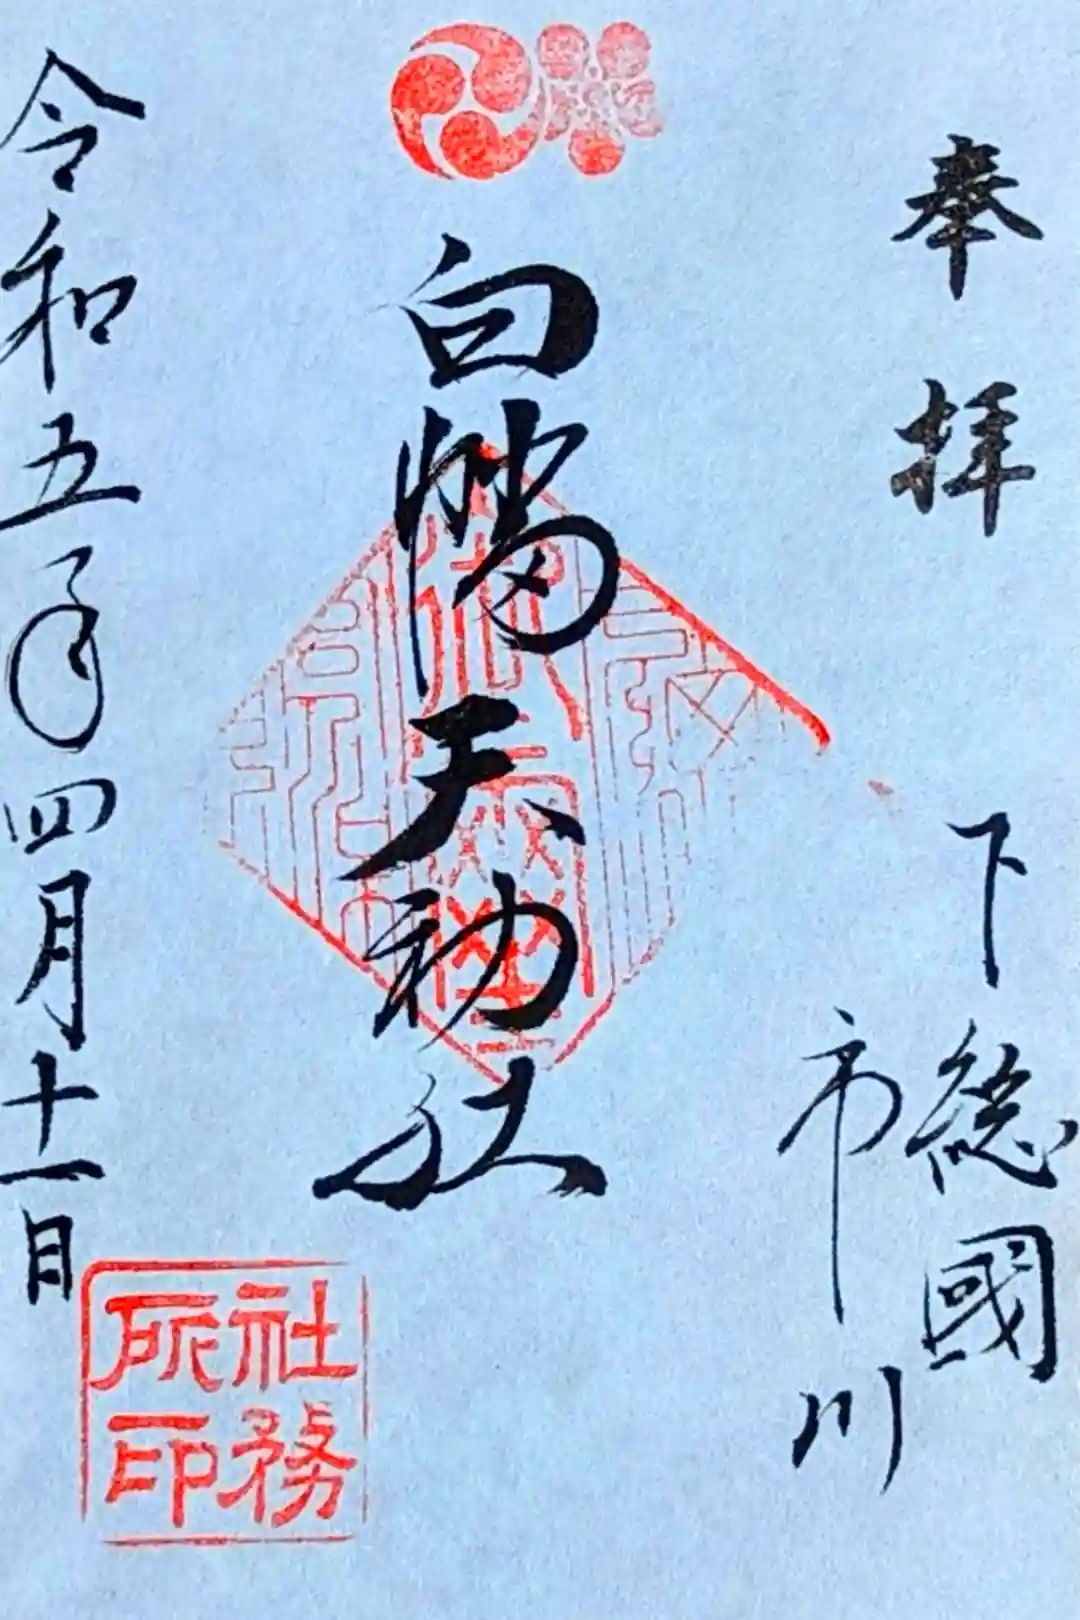 奉拝
下総國
市川
白幡天神社
令和五年四月十一日
社務所印